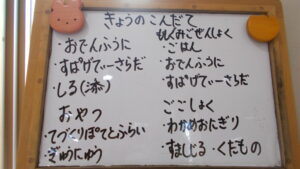 きょうのこんだて
・おでんふうに
・すぱげてぃーさらだ
・しる(添)
おやつ
・てづくりぽてとふらい
・ぎゅうにゅう
もぐもぐごぜんしょく
・ごはん
・おでんふうに
・すぱげてぃーさらだ
ごごしょく
・わかめおにぎり
・すましじる・くだもの